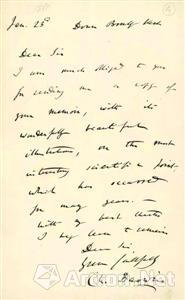 Jan. 23d Down Bromley Kent
Dear Sir
I am much obliged to you
for sending me a copy of
your memoir, with its
wonderfully beautiful
illustrations, on the most
interesting scientific point
which has occurred
for many years.—
With my best thanks
I beg leave to remain
Dear Sir
Yours faithfully
Ch. Darwin
ArtNet